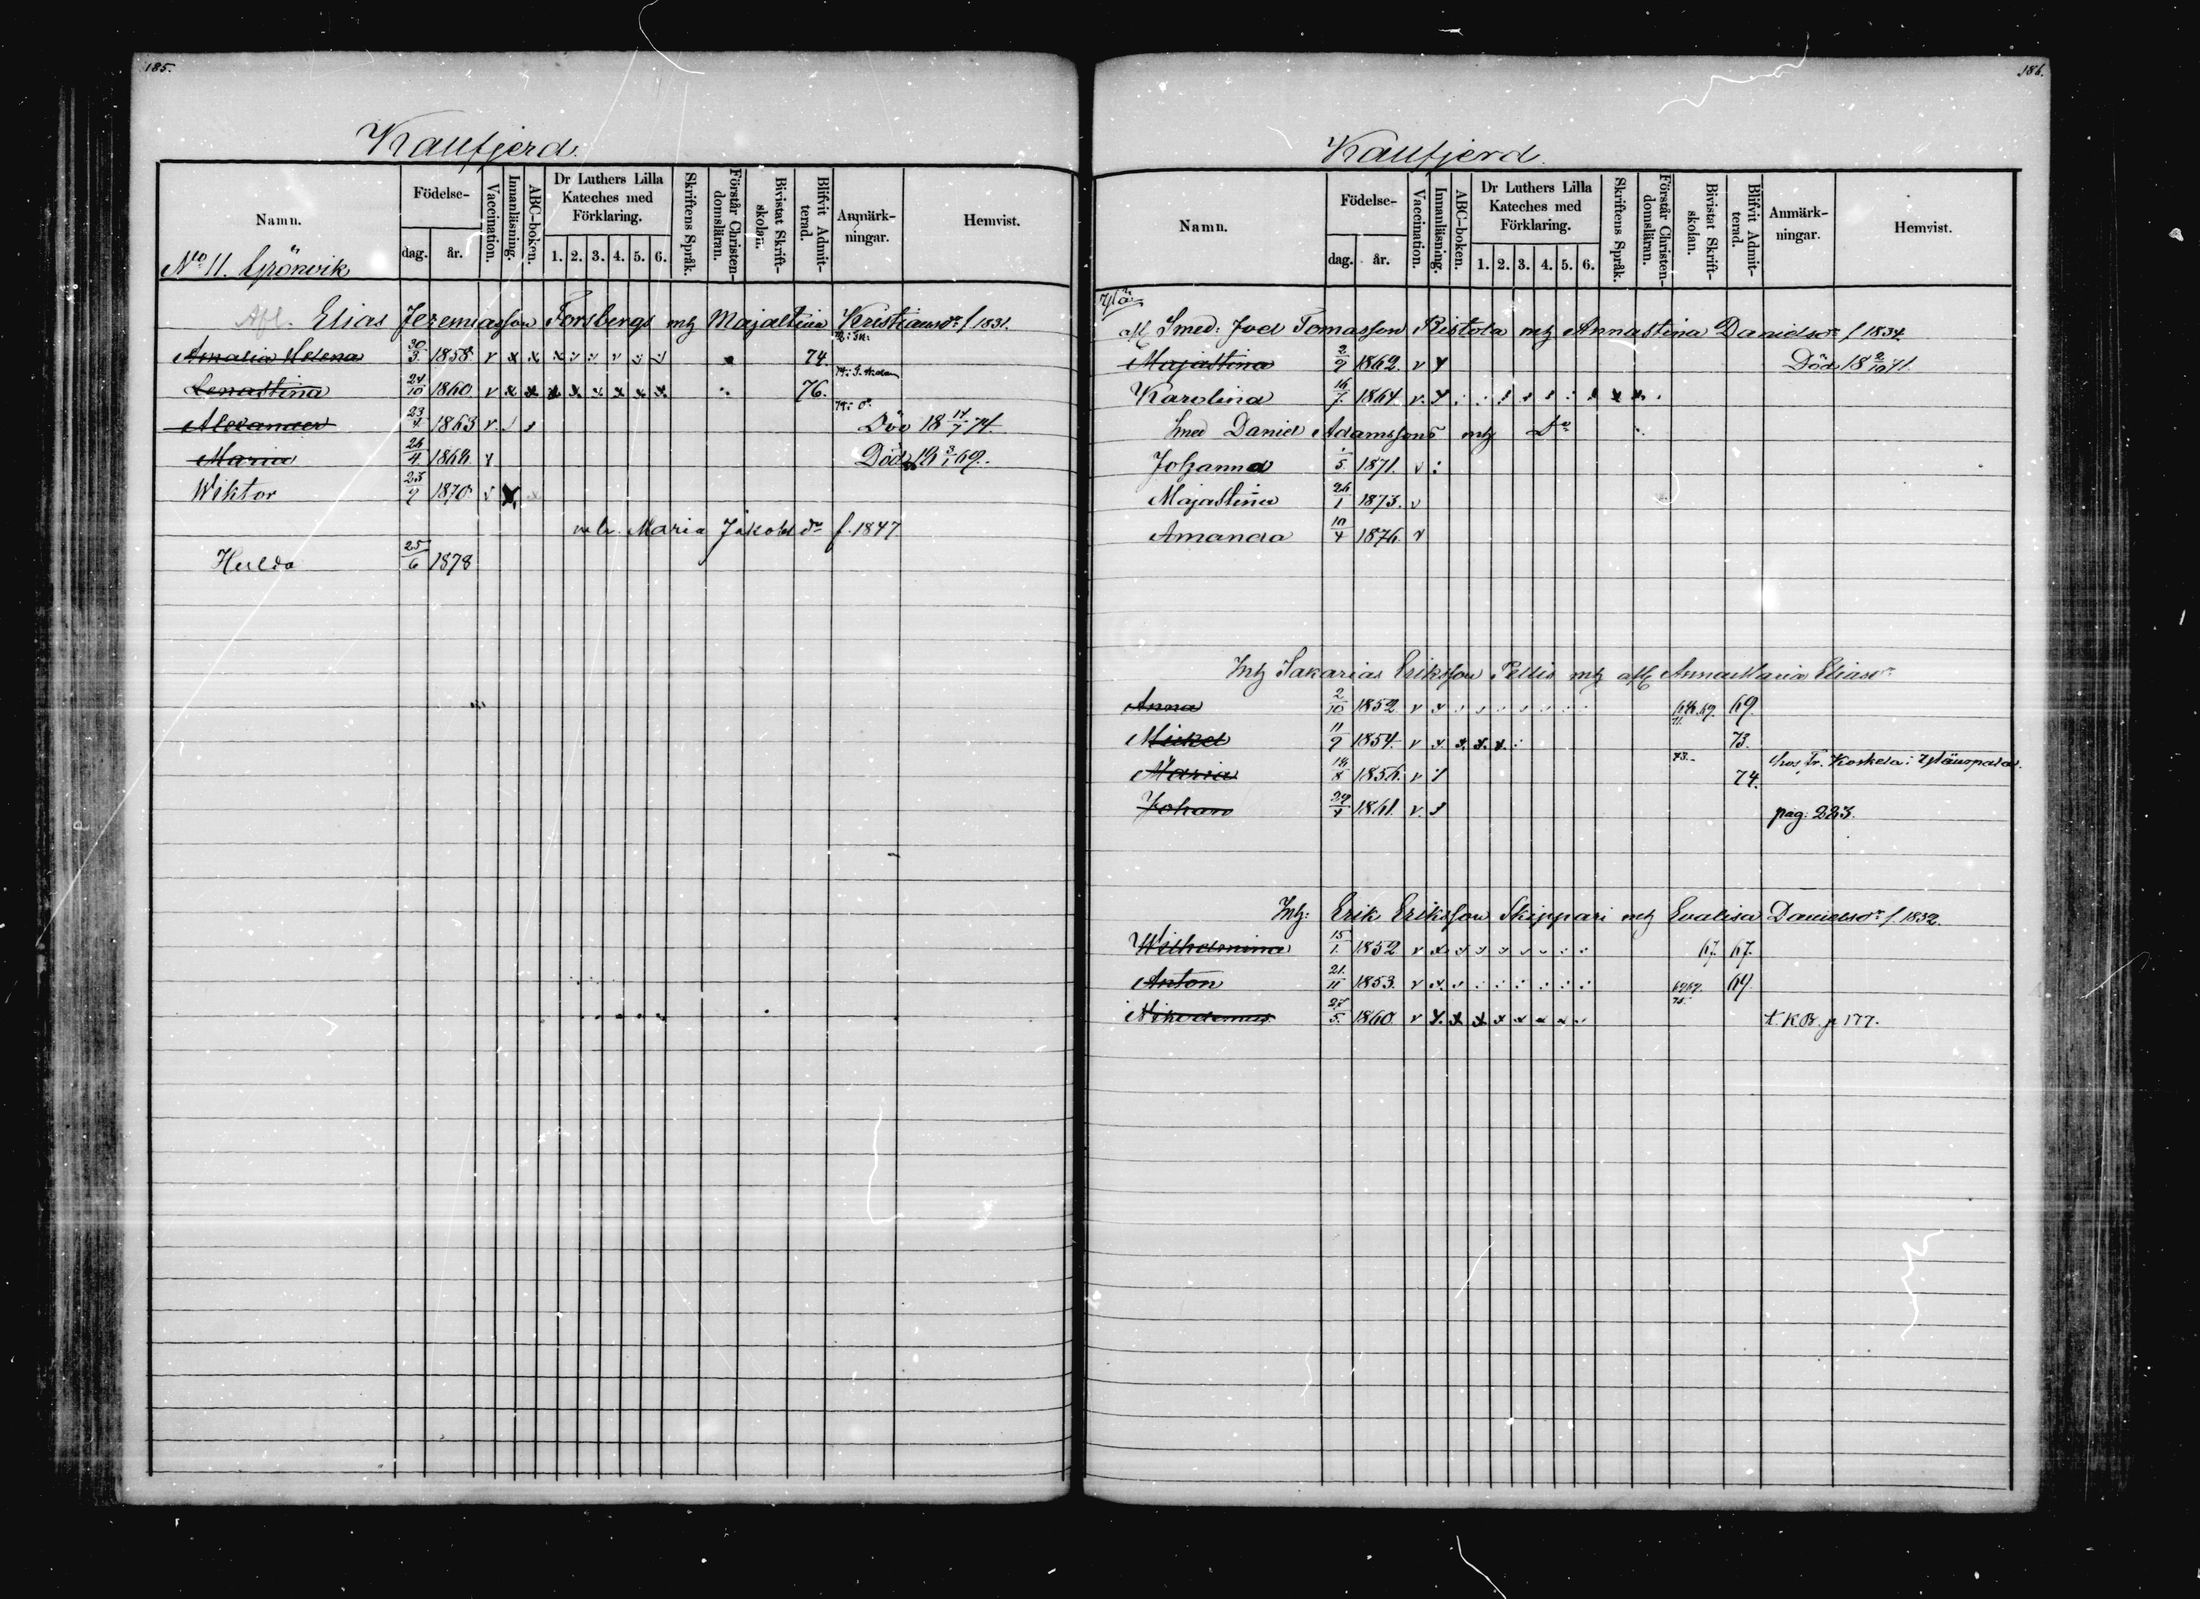 185.
Kallfjerd.
Namn.
Födelse-
dag.
år.
Vaccination.
Innanläsning.
ABC-boken.
Dr Luthers Lilla Kateches med Förklaring.
1. 2. 3. 4. 5. 6.
Skriftens Språk.
Förstår Christendomsläran.
Bivistat Skriftskolan.
Blifvit Admitterad.
Anmärkningar.
Hemvist.
No 11. Grönvik
Afl. Elias Jeremiasson Forsbergs mh Majastina Kristiansdr f 1831.
Amalia Helena 30/3 1858 v x x 74.
Lenastina 24/10 1860 v x x x x x x x x 76.
Alexander 23/4 1863 v Död 18 17/7 74.
Maria 24/4 1868 Död 18 3/1 69.
Wiktor 23/9 1870 v x
Maria Jakobsdr f. 1847
Hulda 25/6 1878
186.
Kallfjerd.
Namn.
Födelse-
dag.
år.
Vaccination.
Innanläsning.
ABC-boken.
Dr Luthers Lilla Kateches med Förklaring.
1. 2. 3. 4. 5. 6.
Skriftens Språk.
Förstår Christendomsläran.
Bivistat Skriftskolan.
Blifvit Admitterad.
Anmärkningar.
Hemvist.
afl Smed: Joel Tomasson Ristola mh Annastina Danielsdr f 1834.
Majastina 2/9 1862. v Död 18 2/10 71.
Karolina 16/7 1864. v.
Smed Daniel Adamssons mh Do
Johanna 5 1871. v :
Majastina 26/1 1873. v
Amanda 10/4 1876. v
Inh Sakarias Eriksson Pellis mh afl AnnaMaria Eliasdr
Anna 2/10 1852 v 68.69. 69.
Mickel 11/9 1854. v 73.
Maria 18/8 1856. v 73. 74. hos Tr. Koskela i
Johan 29/4 1861. v. pag: 223.
Inh: Erik Eriksson Skippari mh Evalisa Danielsdr f. 1832.
Wilhelmina 15/1. 1852 v 67. 67.
Anton 21./11 1853. v 69.
Nikodemus 27/5. 1860 v t. K.B. p 177.